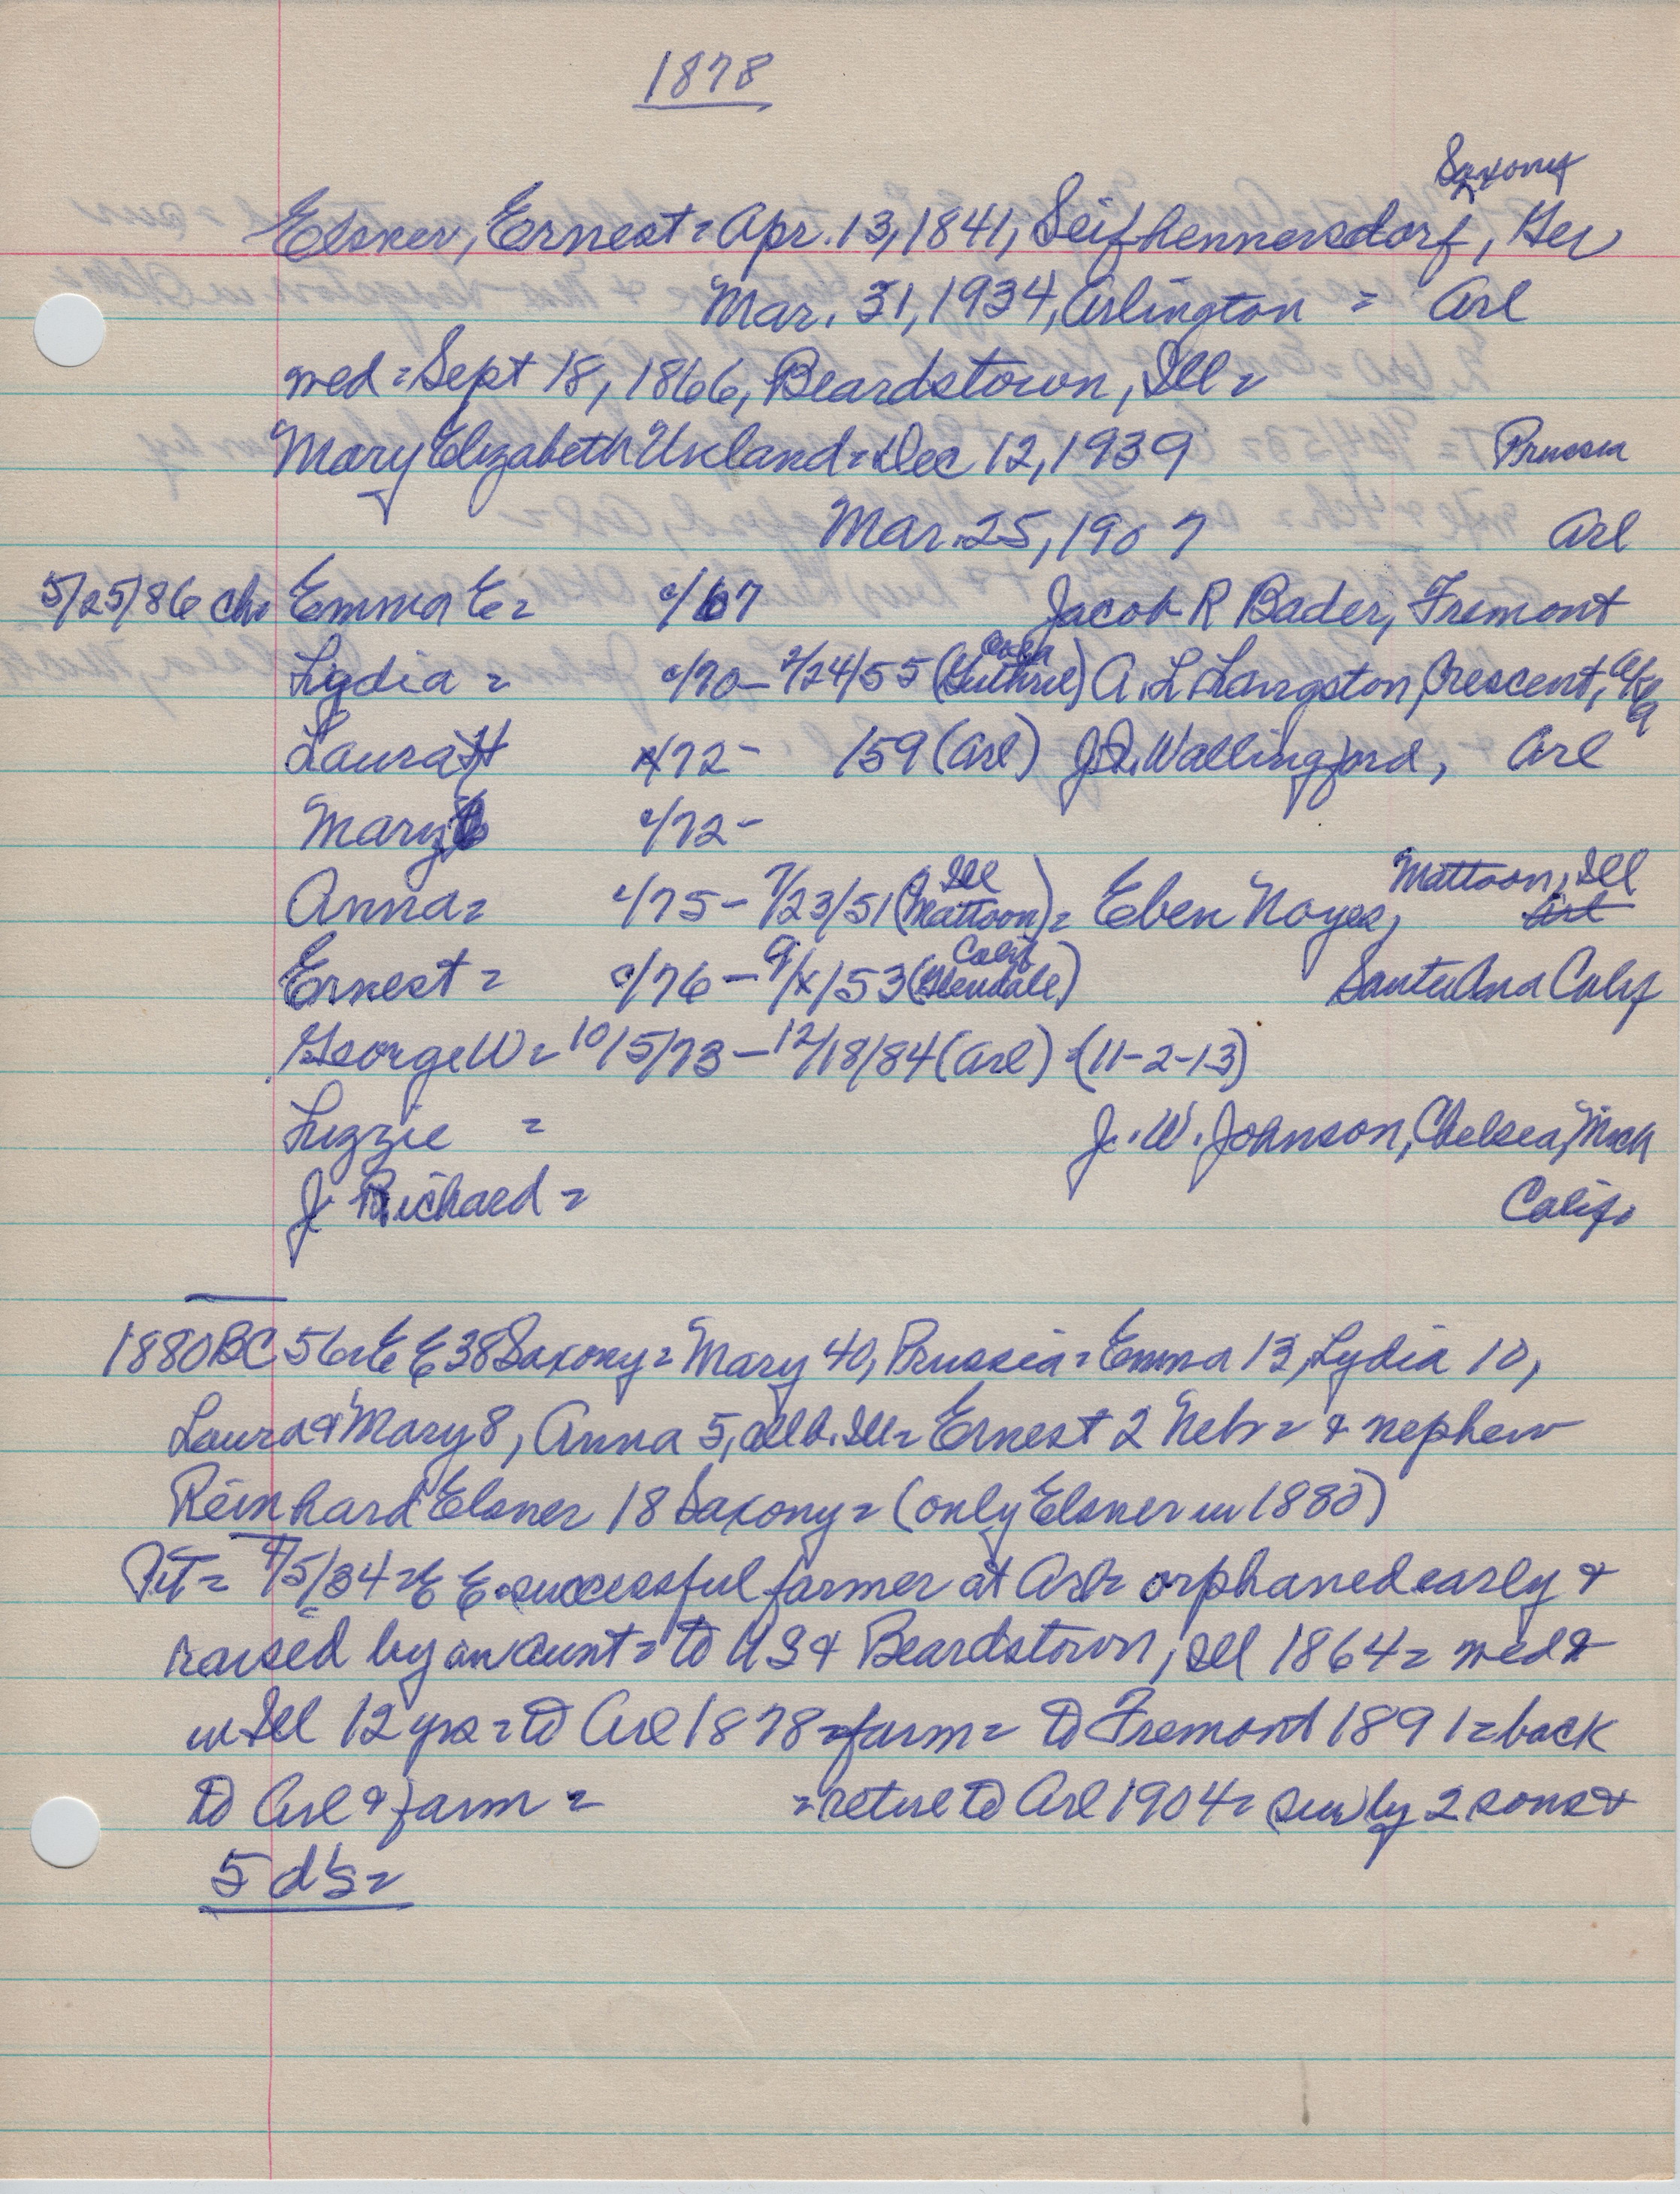 1878
Saxony
Elsner, Ernest = Apr. 13, 1841, Seifhennersdorf, Ger
Mar. 31, 1934, Arlington = Arl
med = Sept 18, 1866, Beardstown, Ill =
Mary Elizabeth Ukland = Dec 12, 1939 Prussia
Mar. 25, 1907 Arl
5/25/86 ch = Emma E = c/67 Jacob R Bader, Fremont
Lydia = c/70 - 2/24/55 (Guthrie) A. L Langston, Crescent,
Laura H 72 - 159 (Arl) Wallingford, Arl
Mary c/72 -
Anna = c/75 - 7/23/51 (Mattoon Ill) = Eben Noyes, Mattoon, Ill Arl
Ernest = c/76 - 9/x/53 (Glendale Calif) Santa Ana Calif
George W = 10/5/73 - 12/18/84 (Arl) = (11-2-13)
Lizzie = J. W. Johnson, Chelsea, Mich
J Richard = Calif.
1880 BC 56 = E E 38 Saxony = Mary 40, Prussia = Emma 13, Lydia 10,
Laura & Mary 8, Anna 5, all b. Ill = Ernest 2 Nebr = & nephew
Reinhard Elsner 18 Saxony = (only Elsner in 1880)
4/5/34 = E E = successful farmer at Arl = orphaned early &
raised by an aunt = to US & Beardstown, Ill 1864 = med &
in Ill 12 yrs = to Arl 1878 = farm = to Fremont 1891 = back
to Arl & farm = = retire to Arl 1904 = sur by 2 sons &
5 d's =